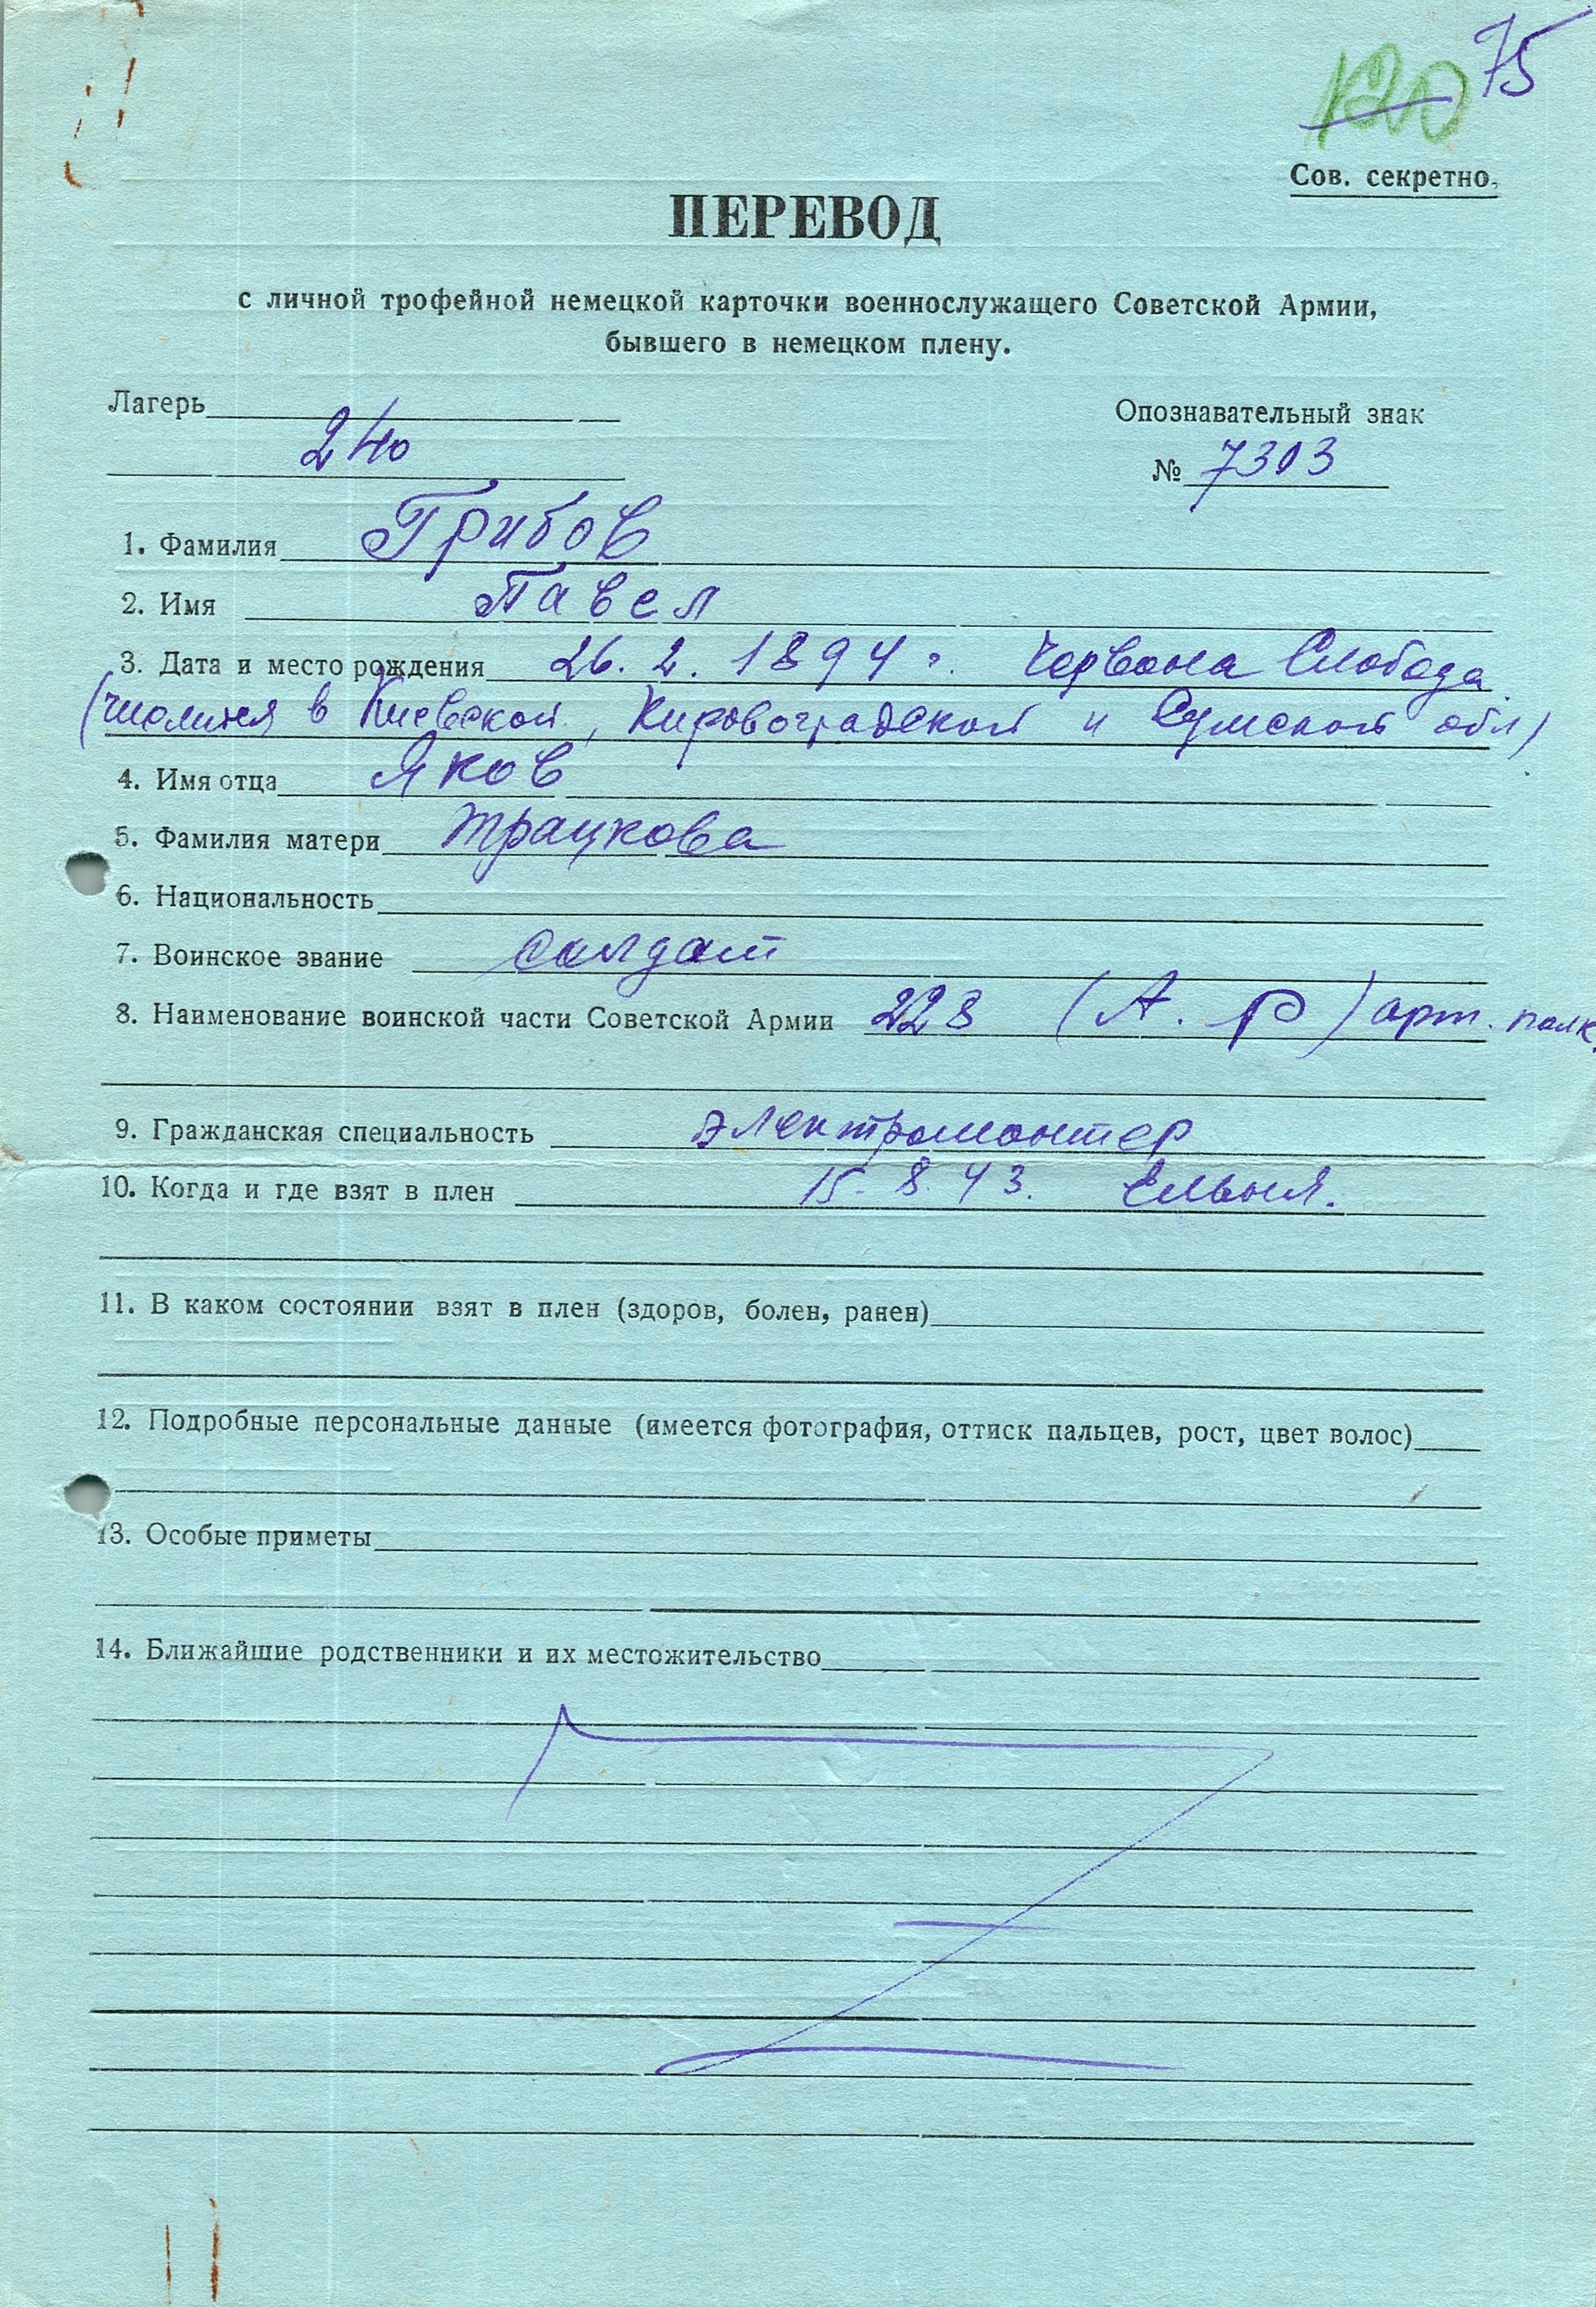 120 75
Сов. секретно.
ПЕРЕВОД
с личной трофейной немецкой карточки военнослужащего Советской Армии,
бывшего в немецком плену.
Лагерь
240
Опознавательный знак
№ 7303
1. Фамилия Грибов
2. Имя Павел
3. Дата и место рождения 26. 2. 1894 г. Червона Слобода
(числится в Киевской, Кировоградской и Сумской обл)
4. Имя отца Яков
5. Фамилия матери Трацкова
6. Национальность
7. Воинское звание солдат
8. Наименование воинской части Советской Армии 228 (А. Р) арт. полк.
9. Гражданская специальность электромонтер
10. Когда и где взят в плен 15. 8. 43. Ельня.
11. В каком состоянии взят в плен (здоров, болен, ранен)
12. Подробные персональные данные (имеется фотография, оттиск пальцев, рост, цвет волос)
13. Особые приметы
14. Ближайшие родственники и их местожительство